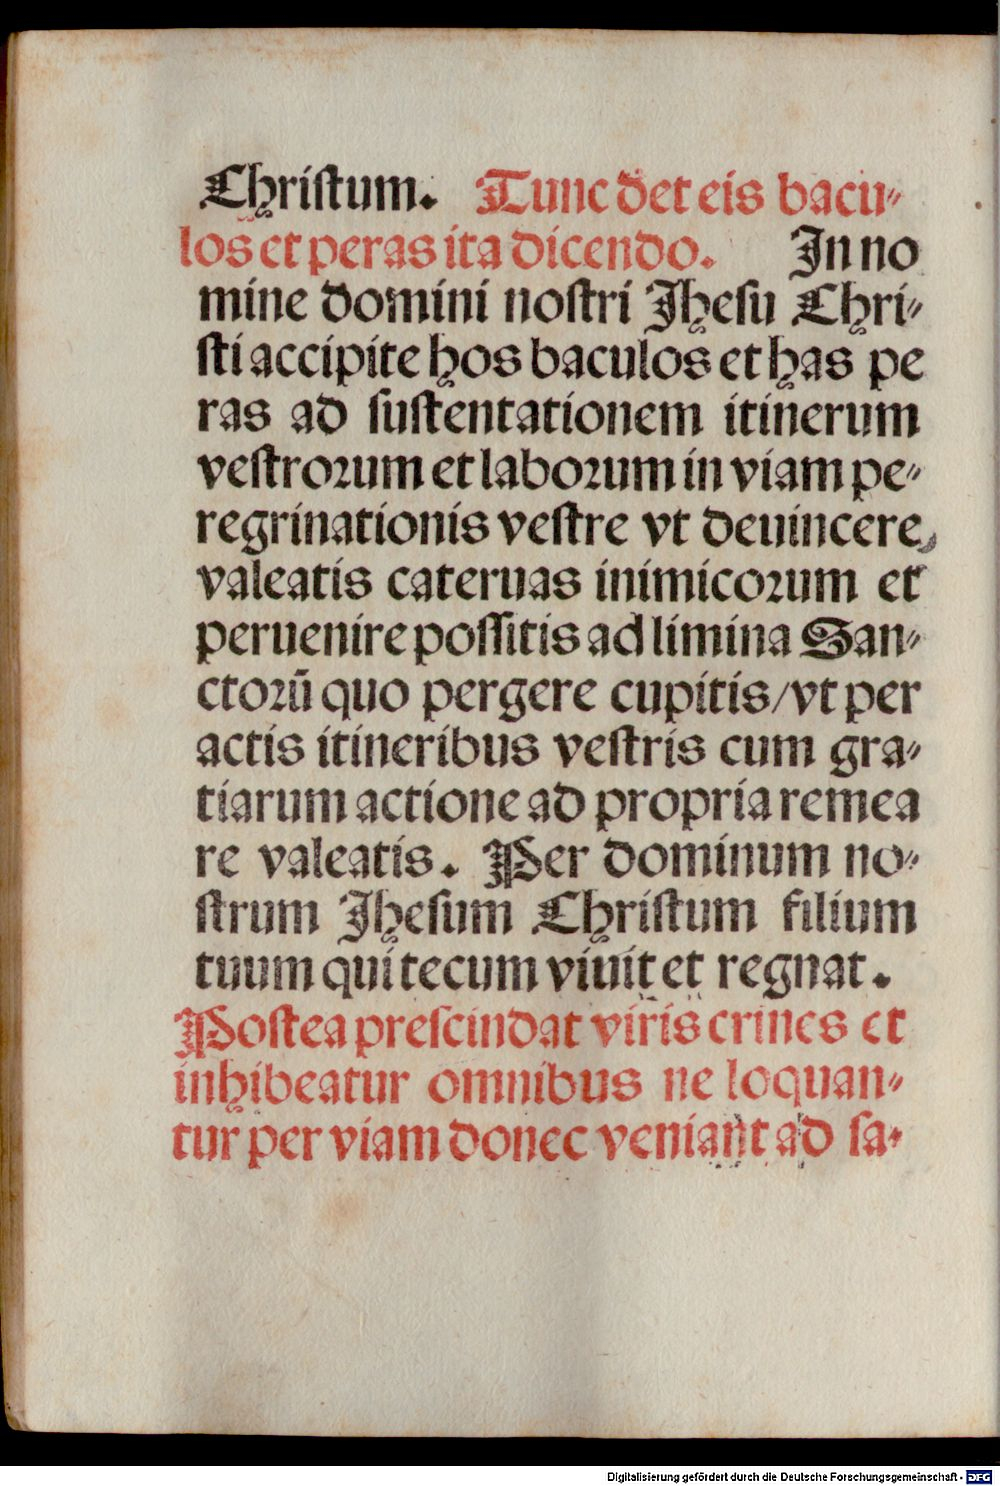 Chriſtum. Tunc det eis bacu-
los et peras ita dicendo. In no
mine domini noſtri Jheſu Chri-
ſti accipite hos baculos et has pe
ras ad ſuſtentationem itinerum
veſtroꝛum et laboꝛum in viam pe-
regrinationis veſtre vt deuincere
valeatis cateruas inimicoꝛum et
peruenire poſſitis ad limina San-
ctoꝛū quo pergere cupitis/vt per
actis itineribus veſtris cum gra-
tiarum actione ad propria remea
re valeatis. Per dominum no-
ſtrum Jheſum Chriſtum filium
tuum qui tecum viuit et regnat.
Poſtea preſcindat viris crines et
inhibeatur omnibus ne loquan-
tur per viam donec veniant ad ſa-
Digitalisierung gefördert durch die Deutsche Forschungsgemeinschaft - DFG